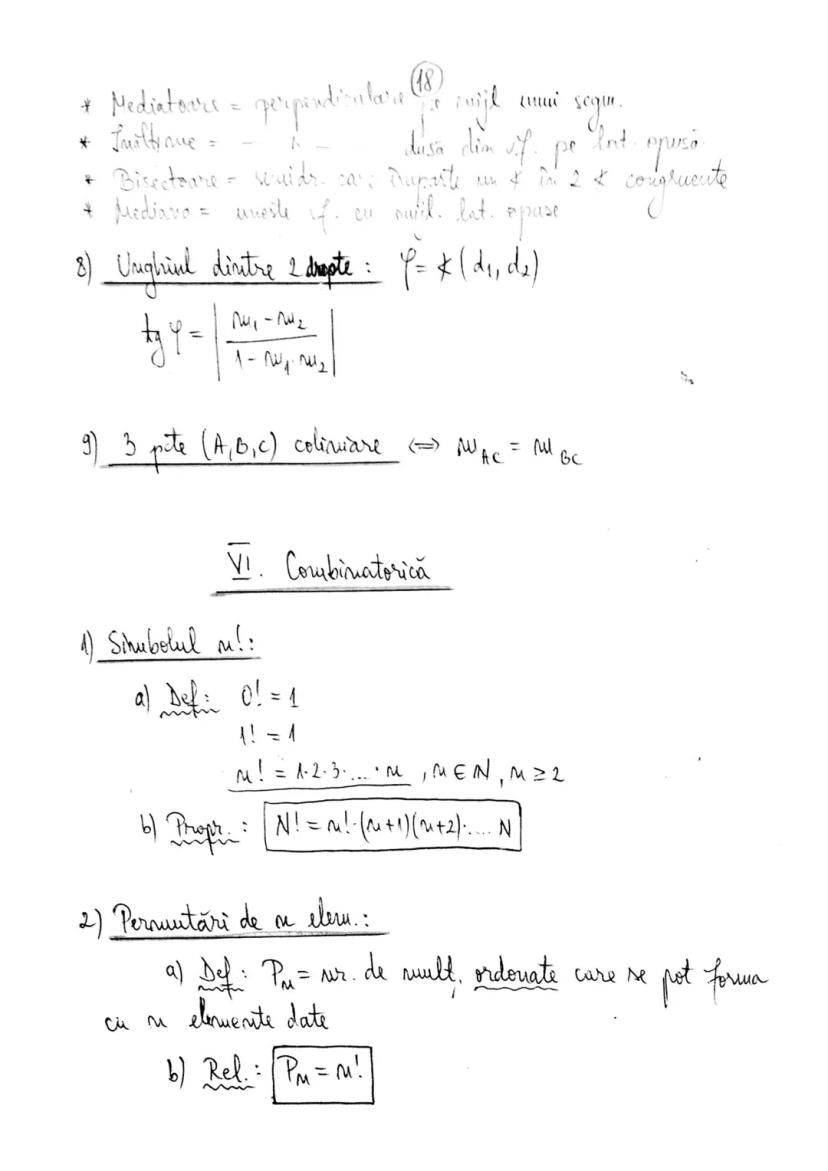 18
* Mediatoare = perpendiculare pe mijl unui segm.
* Înălțime = — " — dusă din vf. pe lat. opusă
* Bisectoare = semidr. care împarte un ∢ în 2 ∢ congruente
* Mediana = unește vf. cu mijl. lat. opuse
8) Unghiul dintre 2 drepte : φ = ∢(d₁, d₂)
tg φ = | (m₁ - m₂) / (1 - m₁·m₂) |
9) 3 pcte (A,B,C) coliniare ⇔ m_AC = m_BC
VI. Combinatorică
1) Simbolul n!:
a) Def: 0! = 1
1! = 1
n! = 1·2·3·...·n , n ∈ N, n ≥ 2
b) Propr. : N! = n!·(n+1)(n+2)·.... N
2) Permutări de n elem.:
a) Def: Pₙ = nr. de mulț. ordonate care se pot forma
cu n elemente date
b) Rel.: Pₙ = n!